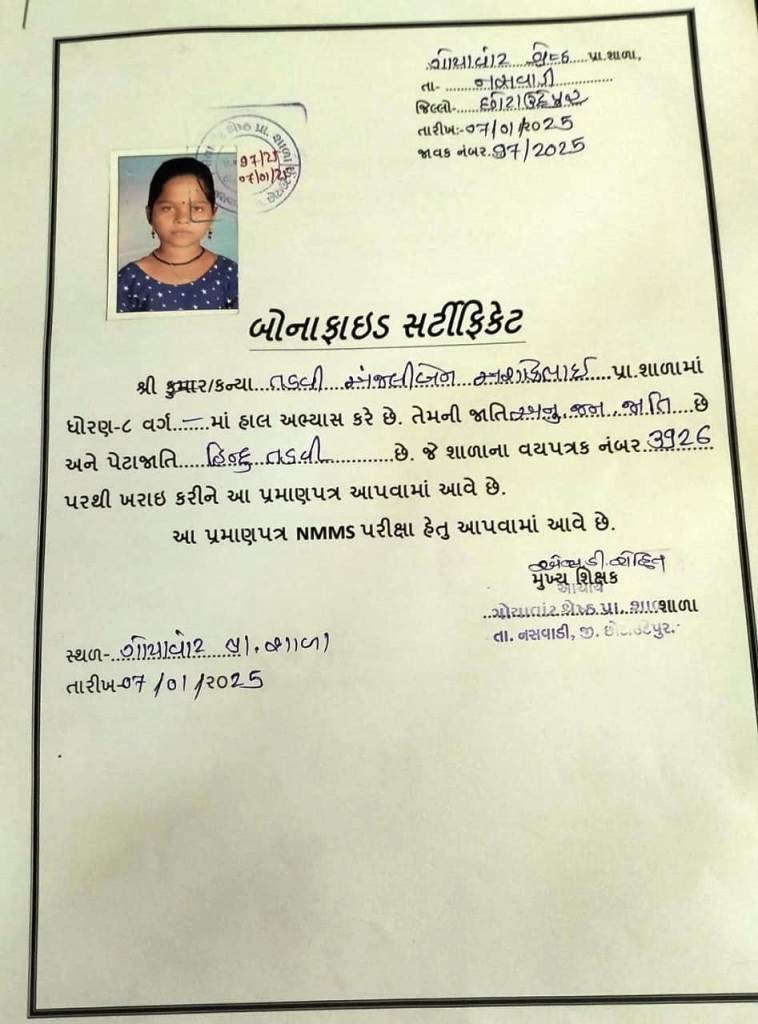 ગોયાવાંટ શ્રેષ્ઠ પ્રા.શાળા,
તા- નસવાડી
જિલ્લો- છોટાઉદેપુર
તારીખ:-07/01/2025
જાવક નંબર.97/2025
97/25
07/01/25
બોનાફાઇડ સર્ટીફિકેટ
શ્રી કુમાર/કન્યા તડવી અંજલીબેન પ્રા.શાળામાં
ધોરણ-૮ વર્ગ - માં હાલ અભ્યાસ કરે છે. તેમની જાતિ અનુ.જન.જાતિ છે
અને પેટાજાતિ હિન્દુ તડવી છે. જે શાળાના વયપત્રક નંબર 3926
પરથી ખરાઇ કરીને આ પ્રમાણપત્ર આપવામાં આવે છે.
આ પ્રમાણપત્ર NMMS પરીક્ષા હેતુ આપવામાં આવે છે.
મુખ્ય શિક્ષક
આચાર્ય
ગોયાવાંટ શ્રેષ્ઠ પ્રા. શાળા શાળા
તા. નસવાડી, જી. છોટાઉદેપુર.
સ્થળ- ગોયાવાંટ પ્રા. શાળા
તારીખ-07/01/2025